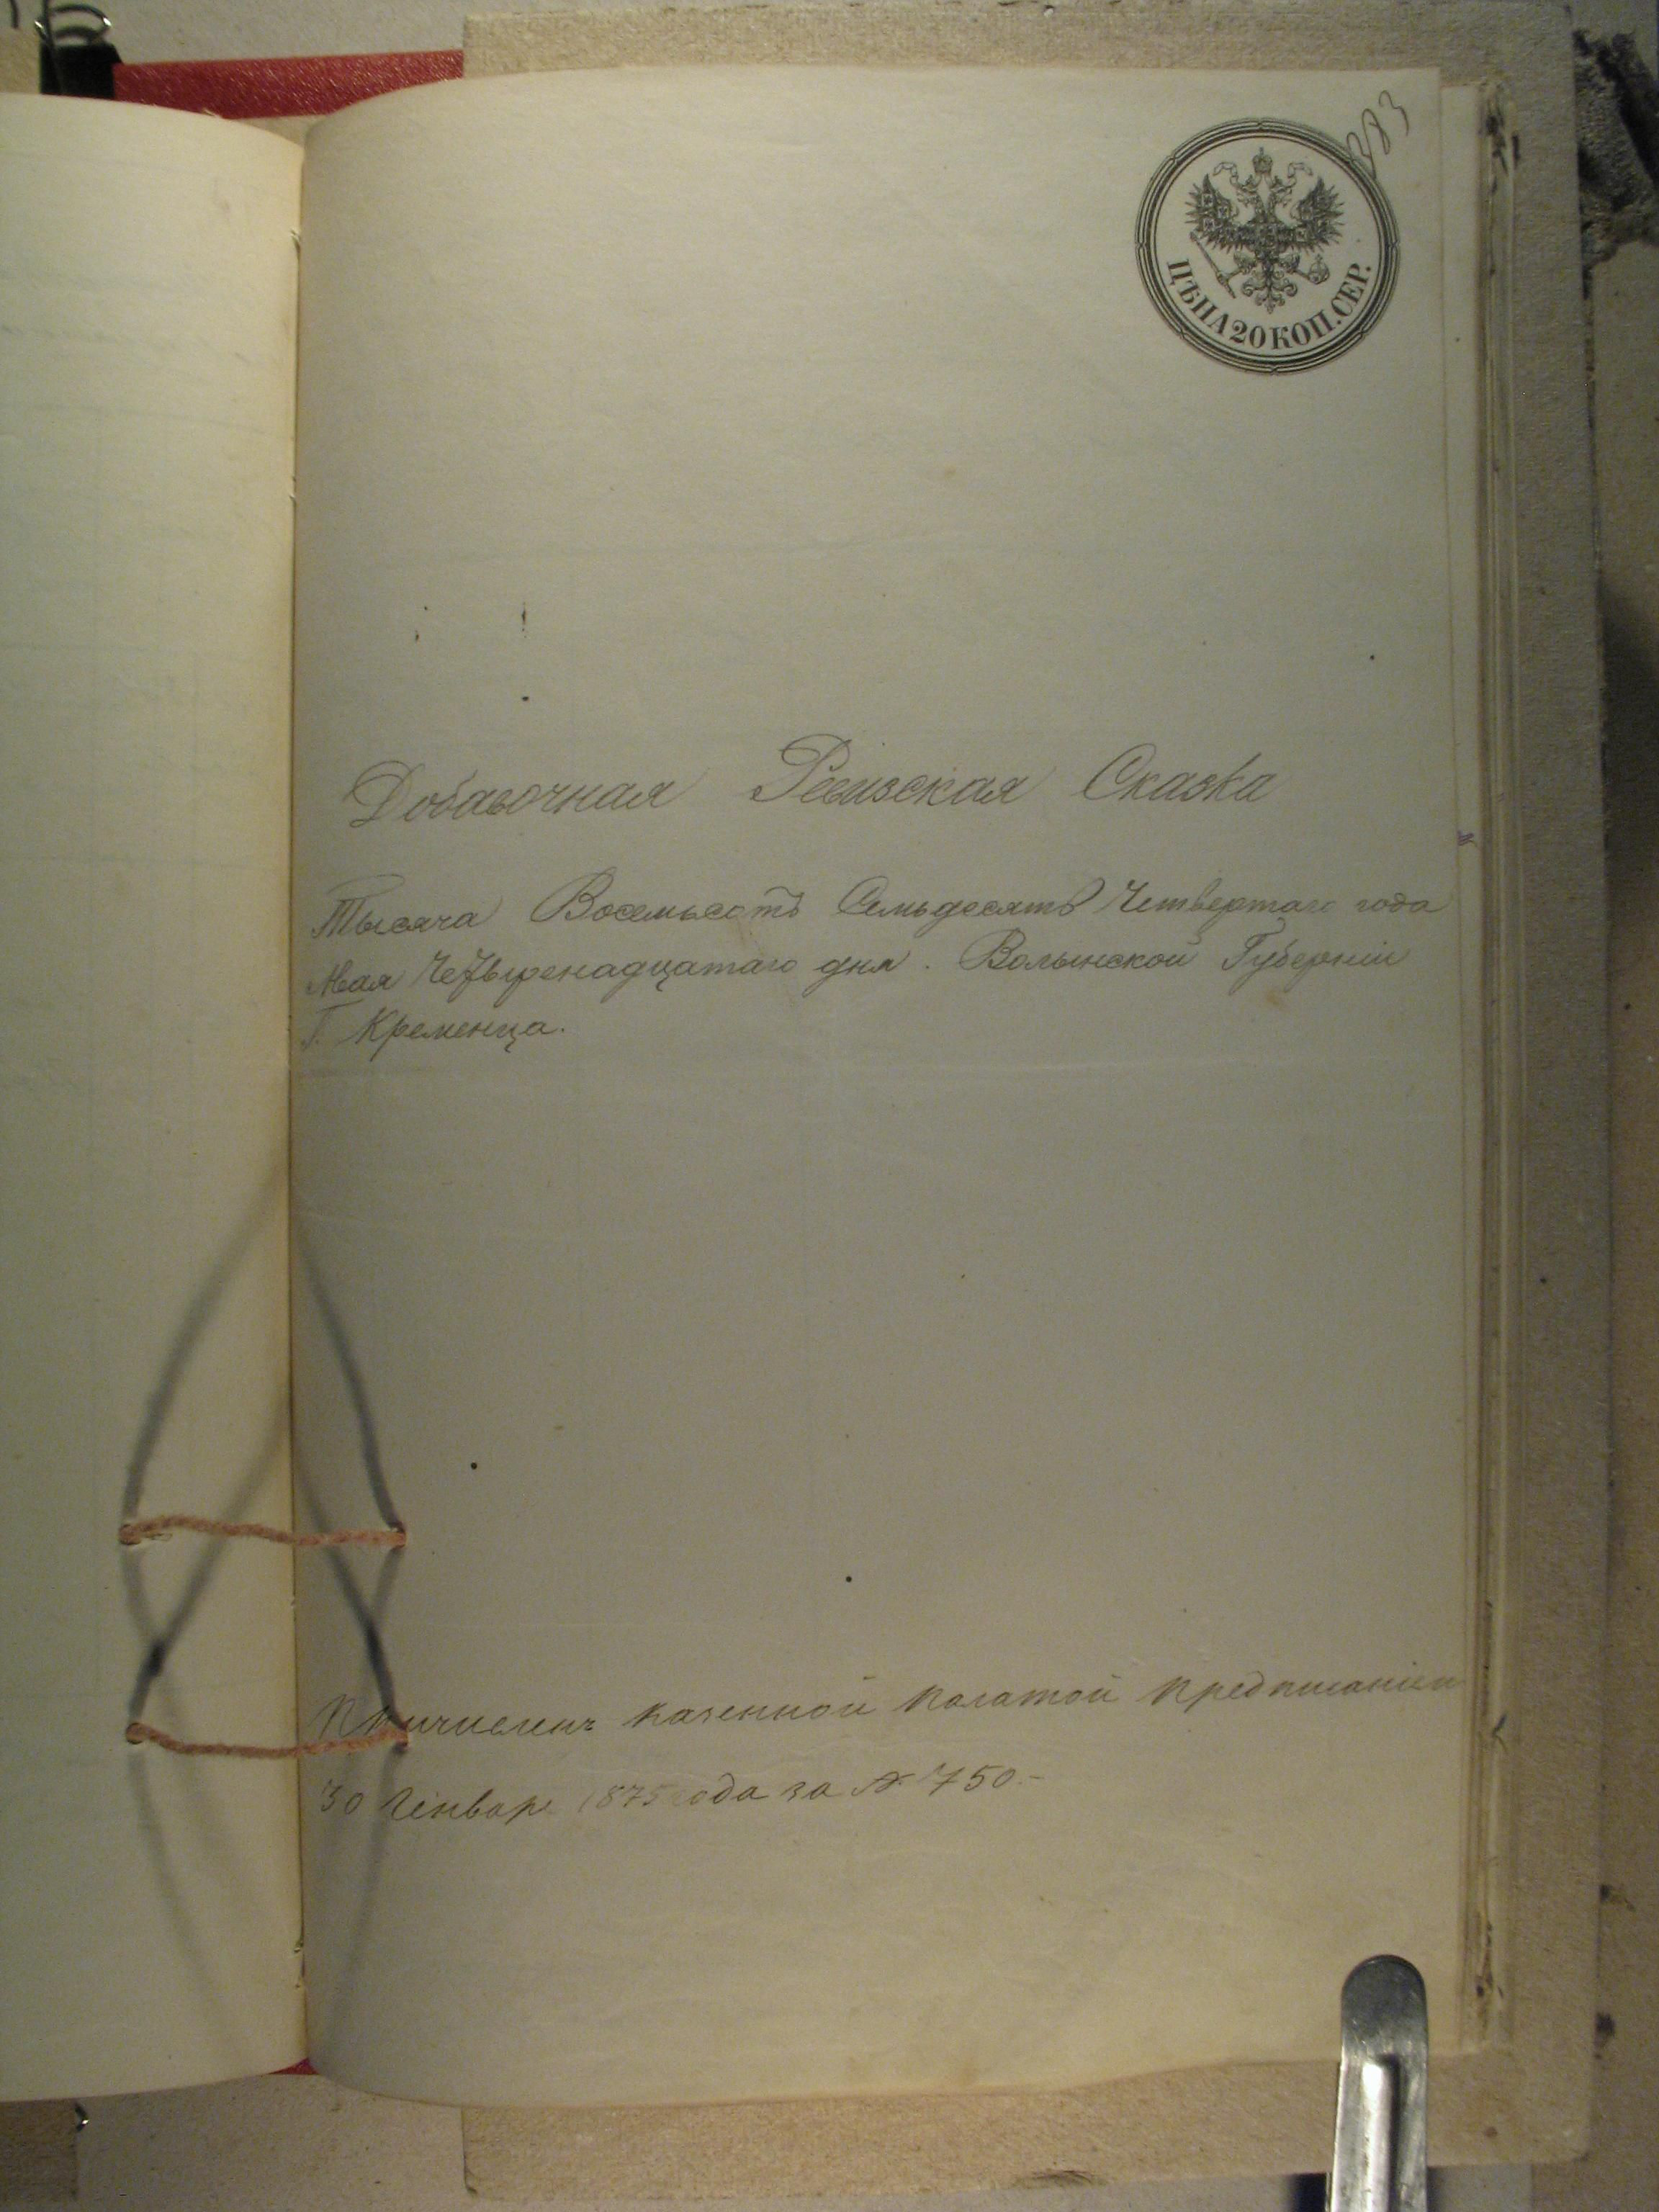 383
ЦѢНА 20 КОП. СЕР.
Добавочная Ревизская Сказка
Тысяча Восемьсотъ Семьдесятъ Четвертаго года
Мая Четыренадцатаго дня. Волынской Губерніи
Г. Кременца.
Причисленъ казенной палатой предписаніем
30 Генваря 1875 года за № 750.-